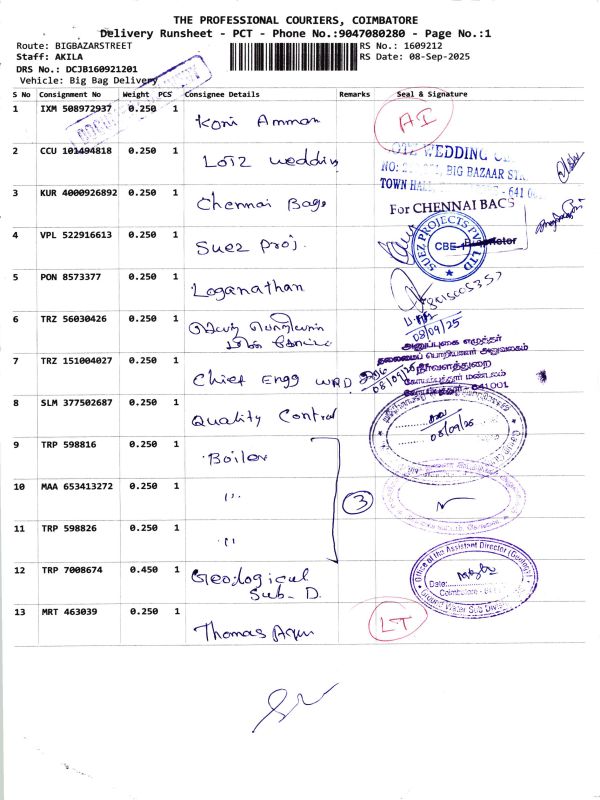 THE PROFESSIONAL COURIERS, COIMBATORE
Delivery Runsheet - PCT - Phone No.:9047080280 - Page No.:1
Route: BIGBAZARSTREET
RS No.: 1609212
Staff: AKILA
RS Date: 08-Sep-2025
DRS No.: DCJB160921201
Vehicle: Big Bag Delivery
S No Consignment No Weight PCS Consignee Details Remarks Seal & Signature
1 IXM 508972937 0.250 1 Koni Amman AI
2 CCU 101494818 0.250 1 LOTZ wedding
WEDDING
BIG BAZAAR
TOWN HALL
3 KUR 4000926892 0.250 1 Chennai Bags
For CHENNAI BAGS
Proprietor
4 VPL 522916613 0.250 1 Suez Proj.
SUEZ PROJECTS PVT LTD
CBE-1
5 PON 8573377 0.250 1 Loganathan
6 TRZ 56030426 0.250 1
08/09/25
7 TRZ 151004027 0.250 1 Chief Engg WRD
08/09/25
அனுப்புகை எழுத்தர்
தலைமைப் பொறியாளர் அலுவலகம்
நீர்வளத்துறை
கோயம்புத்தூர் மண்டலம்
கோயம்புத்தூர் - 641001
8 SLM 377502687 0.250 1 Quality Control
08/09/25
9 TRP 598816 0.250 1 Boiler
10 MAA 653413272 0.250 1 ,,
3
11 TRP 598826 0.250 1 ,,
12 TRP 7008674 0.450 1 Geological
Sub. D.
Office of the Assistant Director (Geology)
Date:
Coimbatore - 641
Ground Water Sub Division
13 MRT 463039 0.250 1 Thomas Agun
LT